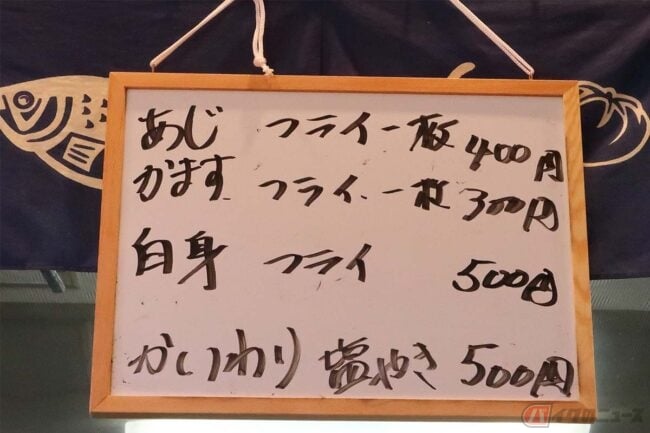 あじ フライ 一枚 400円
かます フライ 一枚 300円
白身 フライ 500円
かいわり 塩やき 500円
バイクのニュース